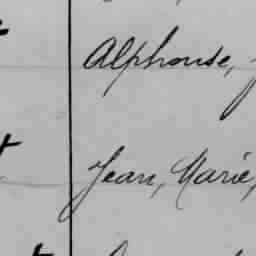 Alphonse,
Jean, Marie,